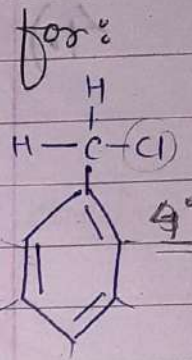 for:
H
H—C—Cl
4°